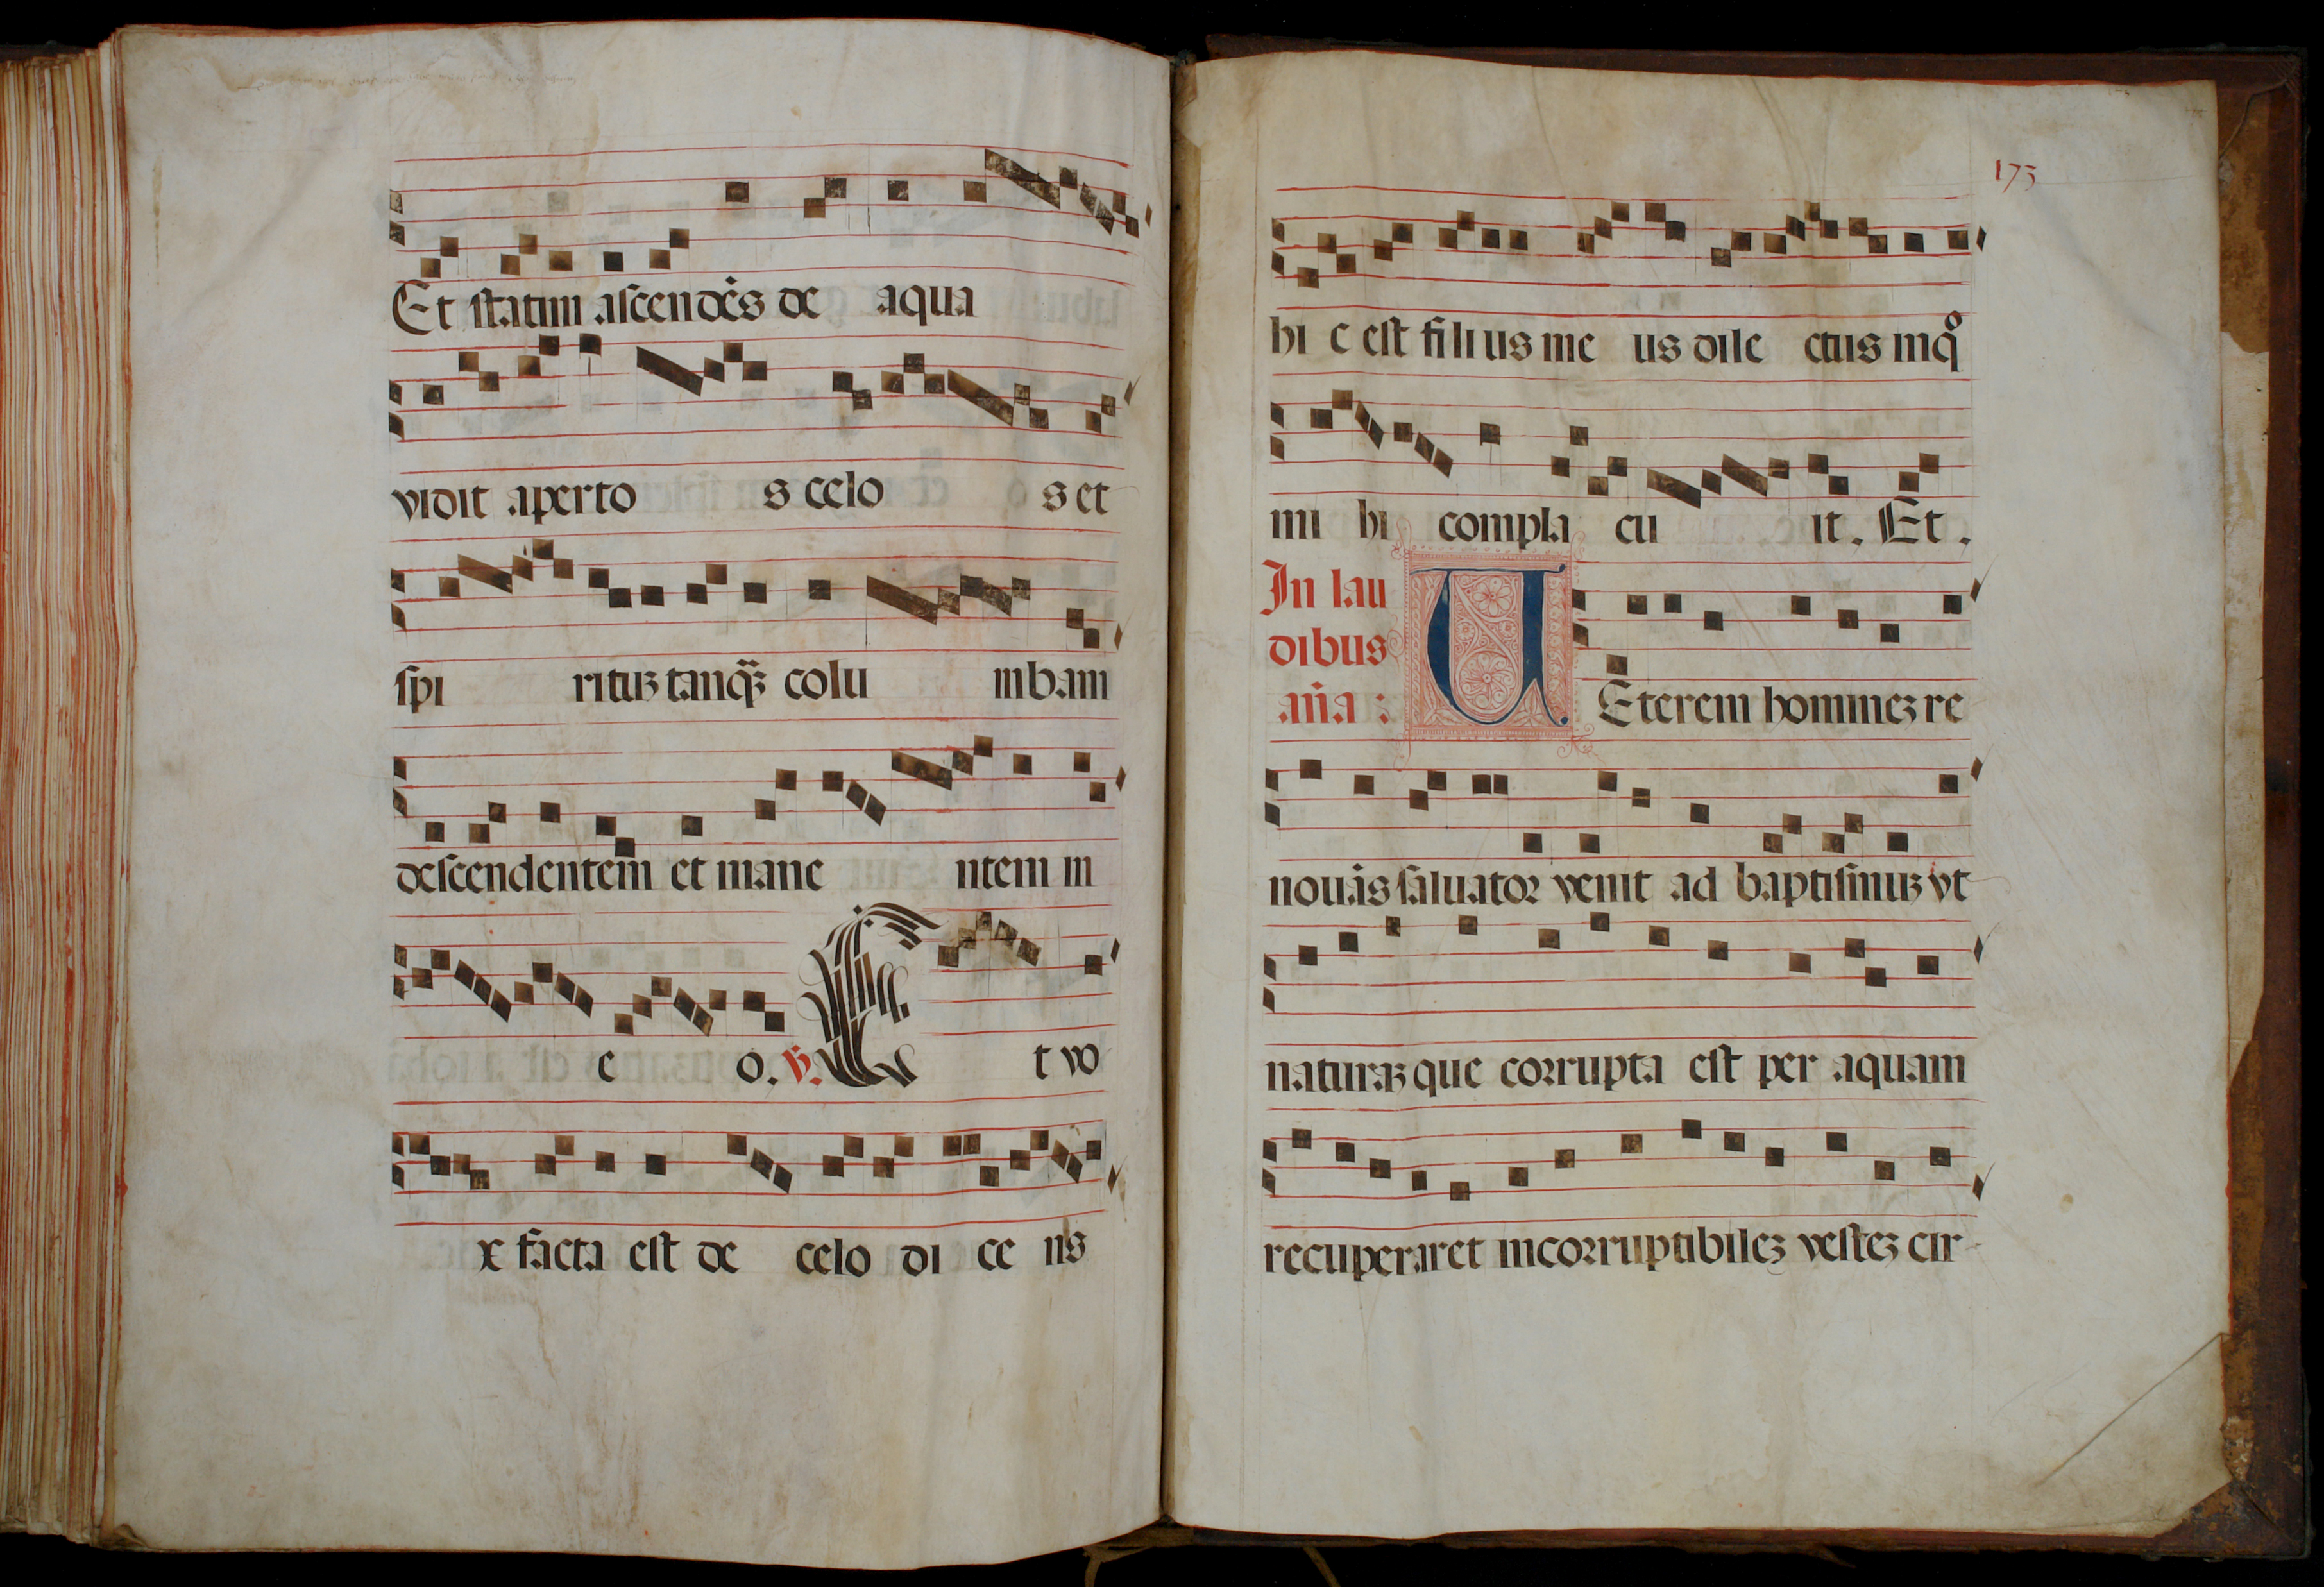 Et statim ascendēs de aqua
vidit aperto s celo s et
spi rituʒ tanq̃ʒ colu mbam
descendentem et mane ntem in
e o. ℣. Et vo
x facta est de celo di ce ns
173
hi c est filius me us dile ctus in q̊
mi hi compla cu it. Et.
In lau
dibus
an̄a :
UEterem homineʒ re
nouās saluator venit ad baptismuʒ vt
naturaʒ que corrupta est per aquam
recuperaret incorruptibileʒ vesteʒ cir-